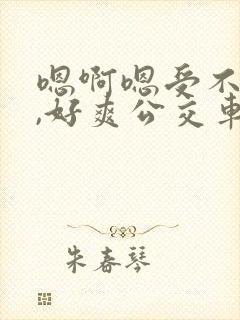 嗯啊嗯受不
,好爽公交车
朱春琴